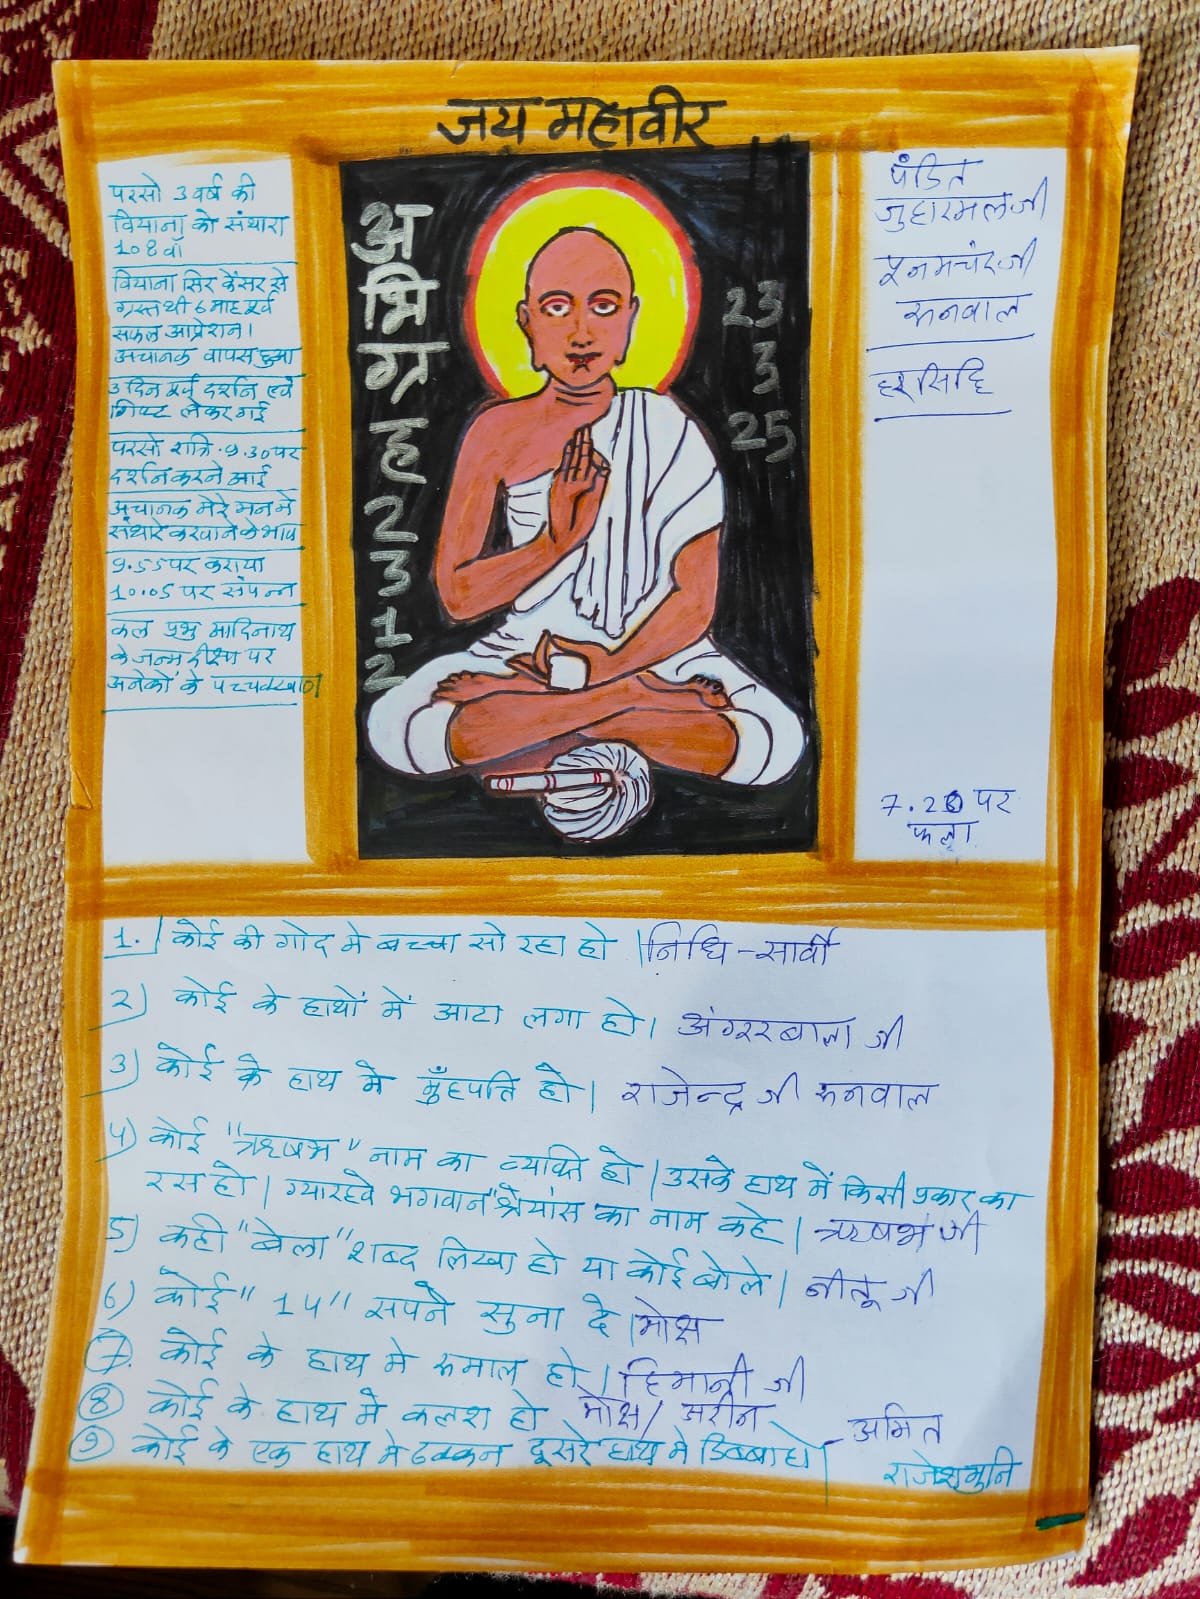 जय महावीर
परसो 3 वर्ष की
वियाना को संथारा
108 वाँ
वियाना सिर कैंसर से
ग्रस्त थी 6 माह पूर्व
सफल आप्रेशन।
अचानक वापस हुआ
3 दिन पूर्व दर्शन एवं
गिफ्ट लेकर गई
परसो रात्रि 9.30 पर
दर्शन करने आई
अचानक मेरे मन मे
संथारे करवाने के भाव
9.55 पर कराया
10.05 पर संपन्न
कल प्रभु आदिनाथ
के जन्म दीक्षा पर
अनेकों के पच्चक्खाण
अ
भि
ग्र
ह
2
3
1
2
23
3
25
पंडित
जुहारमलजी
पूनमचंदजी
रुनवाल
7.20 पर
फला
1. कोई की गोद मे बच्चा सो रहा हो । निधि - सार्वी
2) कोई के हाथों में आटा लगा हो। अंगूरबाला जी
3) कोई के हाथ मे मुँहपत्ति हो। राजेन्द्र जी रुनवाल
4) कोई "ऋषभ" नाम का व्यक्ति हो। उसके हाथ में किसी प्रकार का
रस हो। ग्यारहवे भगवान "श्रेयांस का नाम कहे। ऋषभ जी
5) कही "बेला" शब्द लिखा हो या कोई बोले। नीतू जी
6) कोई "14" सपने सुना दे। मोक्ष
7. कोई के हाथ मे रुमाल हो। हिमानी जी
8 कोई के हाथ मे कलश हो मोक्ष/ अरीन
9 कोई के एक हाथ मे ढक्कन दूसरे हाथ मे डिब्बा हो। - अमित
राजेशमुनि